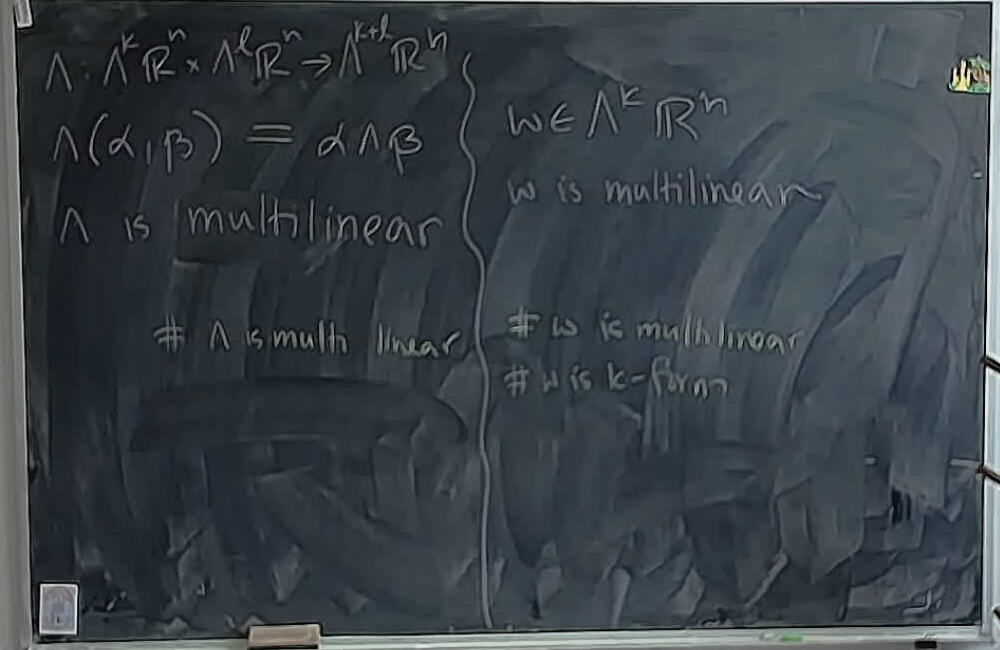 Λ : Λ^k ℝ^n × Λ^l ℝ^n → Λ^{k+l} ℝ^n
Λ(α, β) = α Λ β
Λ is multilinear
# Λ is multi linear
w ∈ Λ^k ℝ^n
w is multilinear
# w is multilinear
# w is k-form